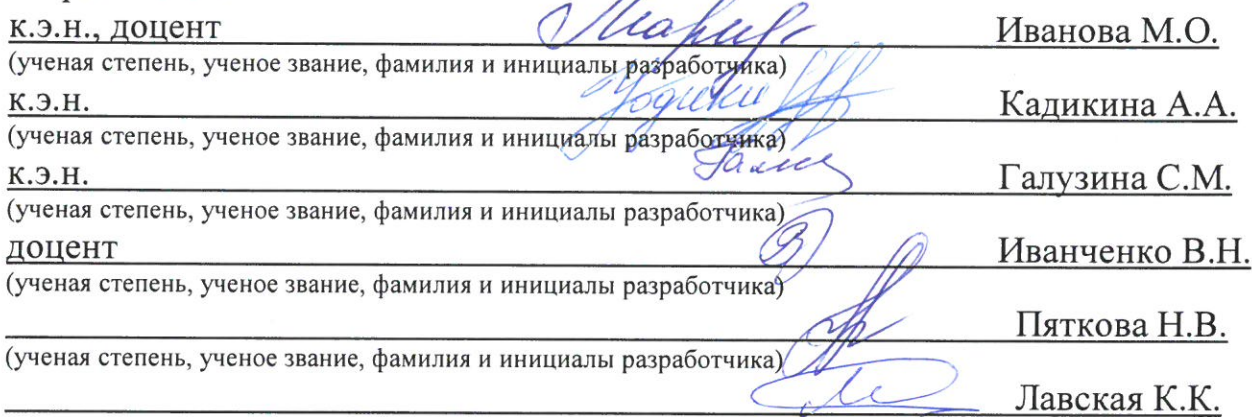 к.э.н., доцент Иванова М.О.
(ученая степень, ученое звание, фамилия и инициалы разработчика)
к.э.н. Кадикина А.А.
(ученая степень, ученое звание, фамилия и инициалы разработчика)
к.э.н. Галузина С.М.
(ученая степень, ученое звание, фамилия и инициалы разработчика)
доцент Иванченко В.Н.
(ученая степень, ученое звание, фамилия и инициалы разработчика)
Пяткова Н.В.
(ученая степень, ученое звание, фамилия и инициалы разработчика)
Лавская К.К.